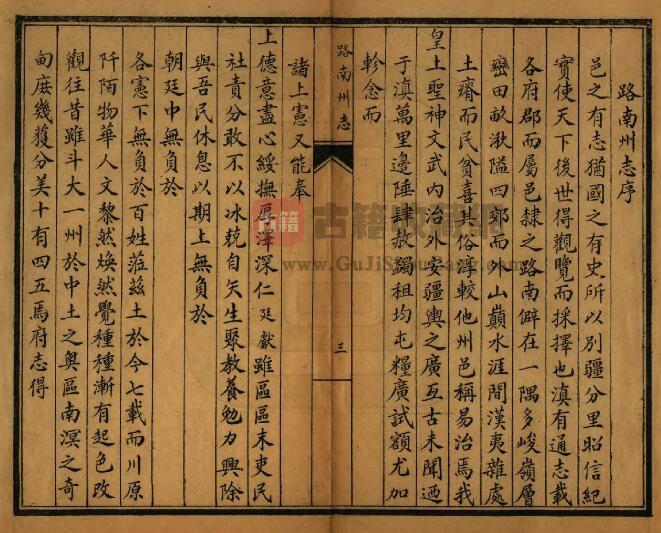 路南州志序
邑之有志猶國之有史所以別疆分里昭信紀
實使天下後世得觀覽而採擇也滇有通志載
各府郡而屬邑隸之路南僻在一隅多峻嶺層
巒田畝湫隘四郊而外山巔水涯間漢夷雜處
土瘠而民貧喜其俗淳較他州邑稱易治焉我
皇上聖神文武內治外安疆輿之廣亙古未聞廼
于滇萬里邊陲肆赦蠲租均屯糧廣試額尤加
軫念而
路南州志
三
諸上憲又能奉
上德意盡心綏撫厚澤深仁廷獻雖區區末吏民
社責分敢不以冰兢自矢生聚教養勉力興除
與吾民休息以期上無負於
朝廷中無負於
各憲下無負於百姓蒞茲土於今七載而川原
阡陌物華人文黎然煥然覺種種漸有起色攷
觀往昔雖斗大一州於中土之奧區南溟之奇
甸庶幾獲分美十有四五焉府志得
古籍收藏網
www.GuJiShouCang.com